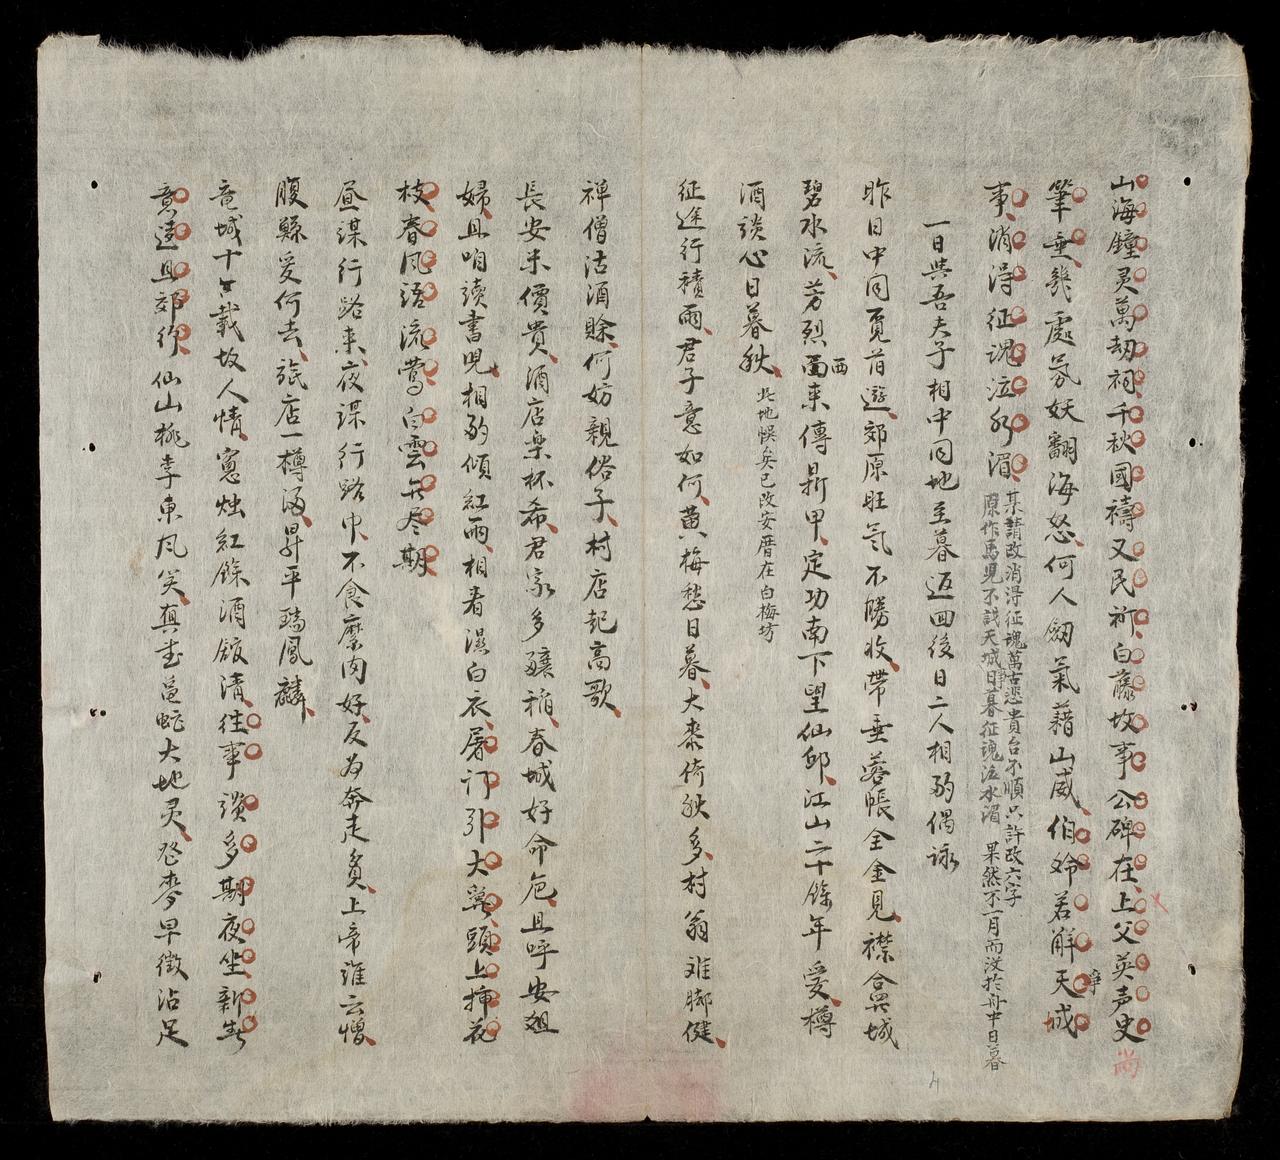 山海鐘灵萬刼祠千秋國禱又民祈白藤故事公碑在上父英声史
尚
筆垂幾處氛妖翻海怒何人劒氣藉山威伯岭若解天城
爭
事消淂征魂泣水湄
某請改消淂征魂萬古悲貴台不順只許改六字
原作馬児不識天城事日暮征魂泣水湄 果然不一月而没於舟中日暮
一日與吾夫子相中同地至暮返回後日二人相酌偶詠
昨日中同覓昔遊郊原旺氣不勝收帶垂蓉帳全金見襟合巽城
碧水流芳烈面来傳鼎甲定功南下望仙邱江山二十餘年愛樽
西
酒談心日暮秋
此地悞矣已改安厝在白梅坊
征途行積雨君子意如何黄梅愁日暮大桼倚秋多村翁难脚健
禅僧沽酒賒何妨親俗子村店起高歌
長安米價貴酒店樂杯希君家多釀稲春城好命卮且呼安俎
婦且咱讀書児相酌傾紅雨相看濕白衣屠門引大㽅頭上揷花
枝春风語流鶯白雲无尽期
昼謀行路来夜謀行路中不食糜肉好反为奔走貧上帝誰云憎
腹縣爰何去旅店一樽酒昇平瑞鳳麟
竜城十年載故人情窻烛紅餘酒舘清往事談多期夜坐新
竟還且郊行仙山桃李東风笑真武邑蛇大地灵登麥早徵沾足